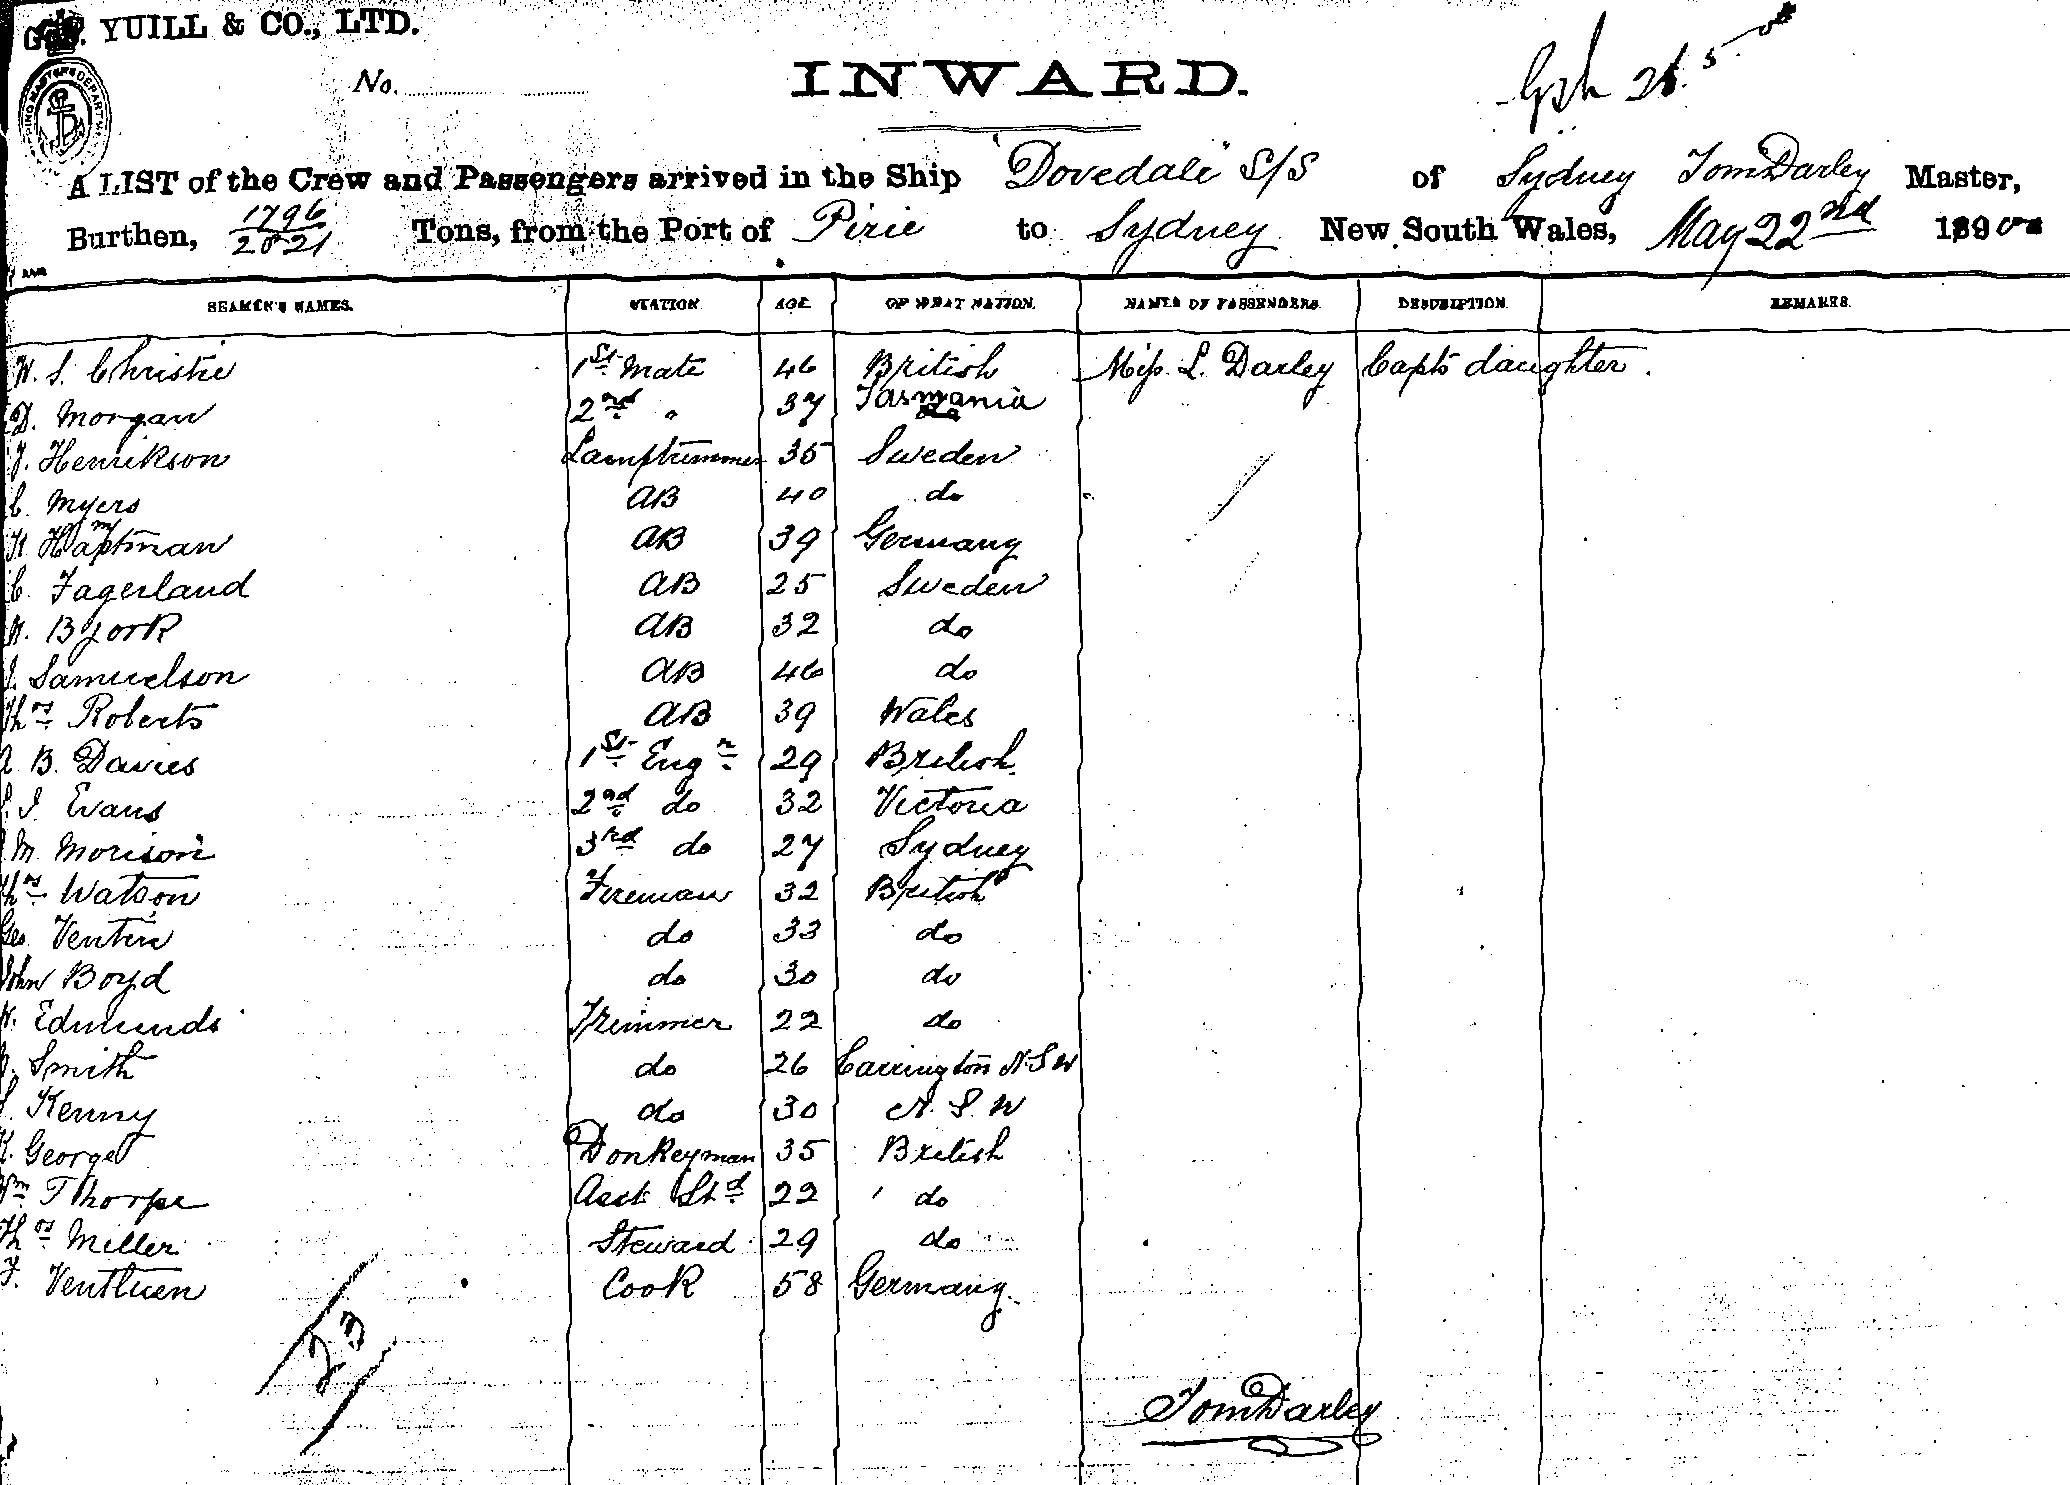 YUILL & CO., LTD.
No.
INWARD.
A LIST of the Crew and Passengers arrived in the Ship "Dovedale" S/S of Sydney Tom Darley Master,
Burthen, 1796/2821 Tons, from the Port of Pirie to Sydney New South Wales, May 22nd
SEAMEN'S NAMES. STATION. AGE. OF WHAT NATION. NAMES OF PASSENGERS. DESCRIPTION. REMARKS.
W. S. Christie 1st Mate 46 British Miss. L. Darley Capts daughter.
D. Morgan 2nd " 37 Tasmania
J. Henrikson Lamptrimmer 35 Sweden
C. Myers AB 40 do
Haptman AB 39 Germany
C. Fagerland AB 25 Sweden
Byork AB 32 do
Samuelson AB 46 do
Thos Roberts AB 39 Wales
A. B. Davies 1st Engr 29 British
Evans 2nd do 32 Victoria
M. Morison 3rd do 27 Sydney
Thos Watson Fireman 32 British
Geo. Ventin do 33 do
John Boyd do 30 do
W. Edmunds Trimmer 22 do
Smith do 26 Carrington N.S.W
Kenny do 30 N. S. W
George Donkeyman 35 British
Wm Thorpe Asst Std 22 do
Thos Miller Steward 29 do
F. Ventluen Cook 58 Germany.
23
Tom Darley